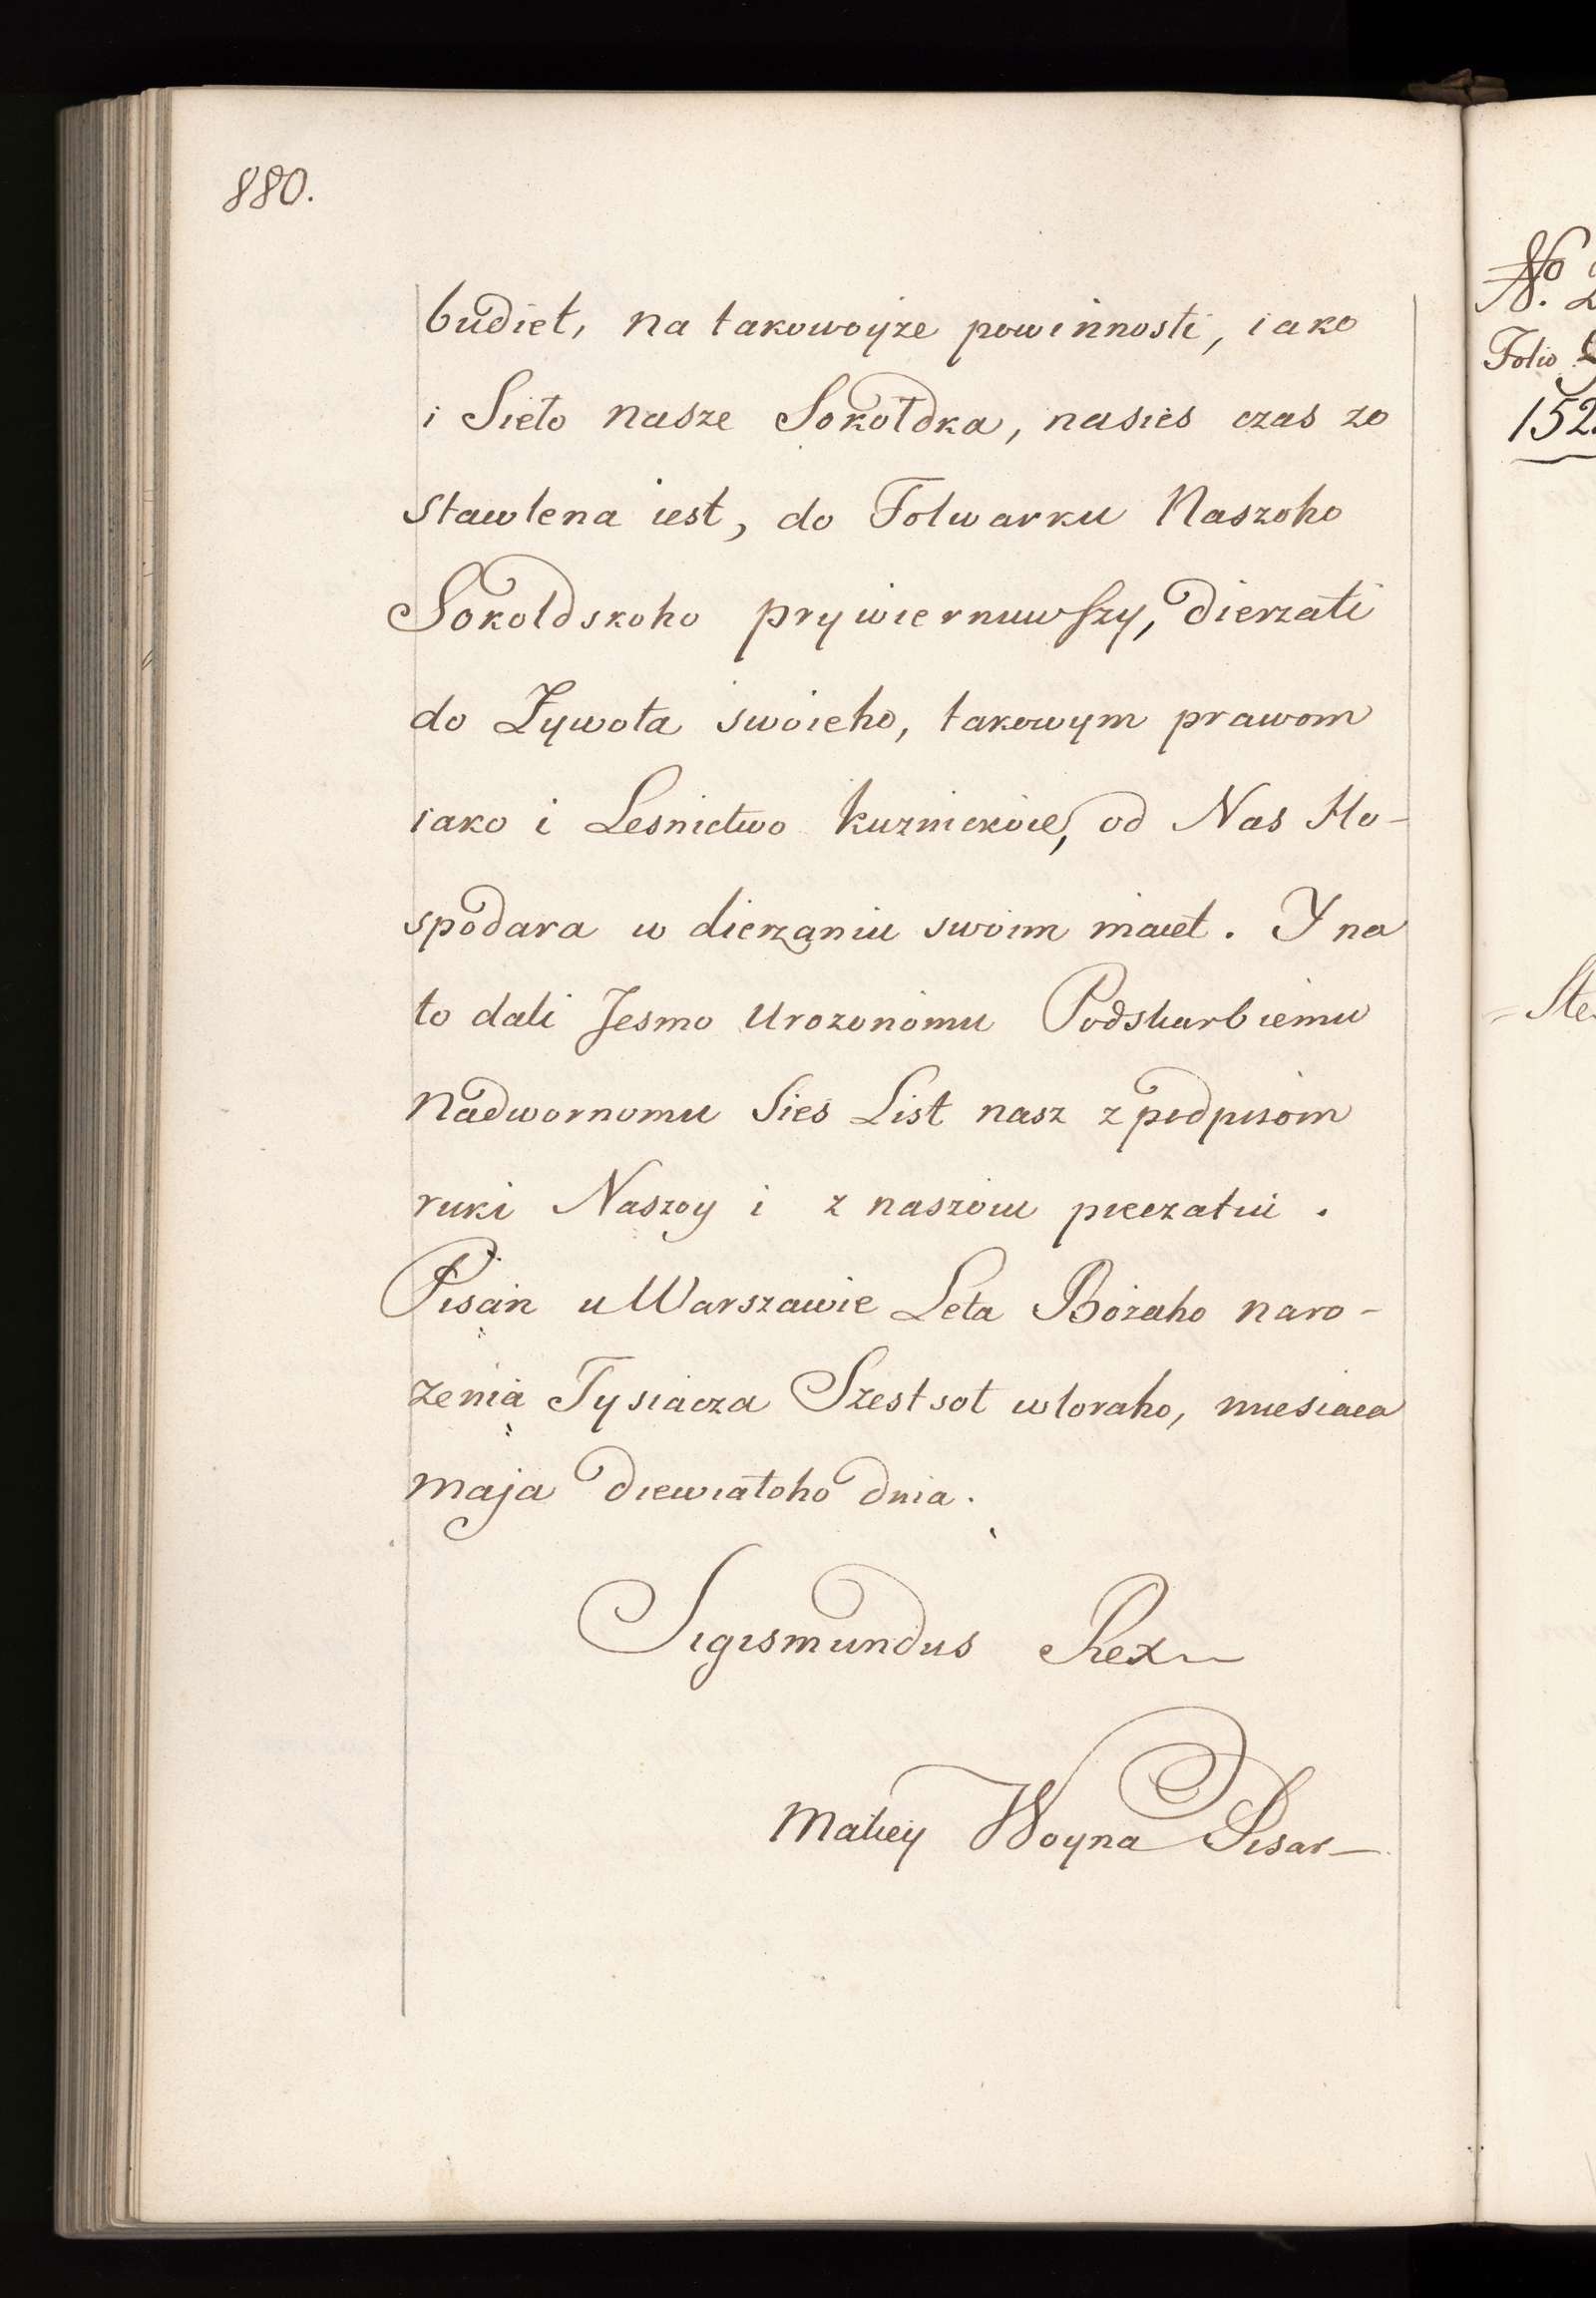 880.
budiet, na takowoyże powinnosti, iako
i Sieło nasze Sokołdka, nasies czas zo
stawlena iest, do Folwarku Naszoho
Sokoldskoho prywiernuwszy, dierzati
do Żywota swoieho, takowym prawom
iako i Lesnictwo kuznickoie, od Nas Ho-
spodara w dierzaniu swoim maiet. Y na
to dali Jesmo Urozonomu Podskarbiemu
Nadwornomu Sies List nasz z podpisom
ruki Naszoy i z naszoiu pieczatiu.
Pisan u Warszawie Leta Bożaho naro-
zenia Tysiacza Szestsot wtoraho, miesiaca
maja diewiatoho dnia.
Sigismundus Rex
Matiey Woyna Pisar
No
Folio
152